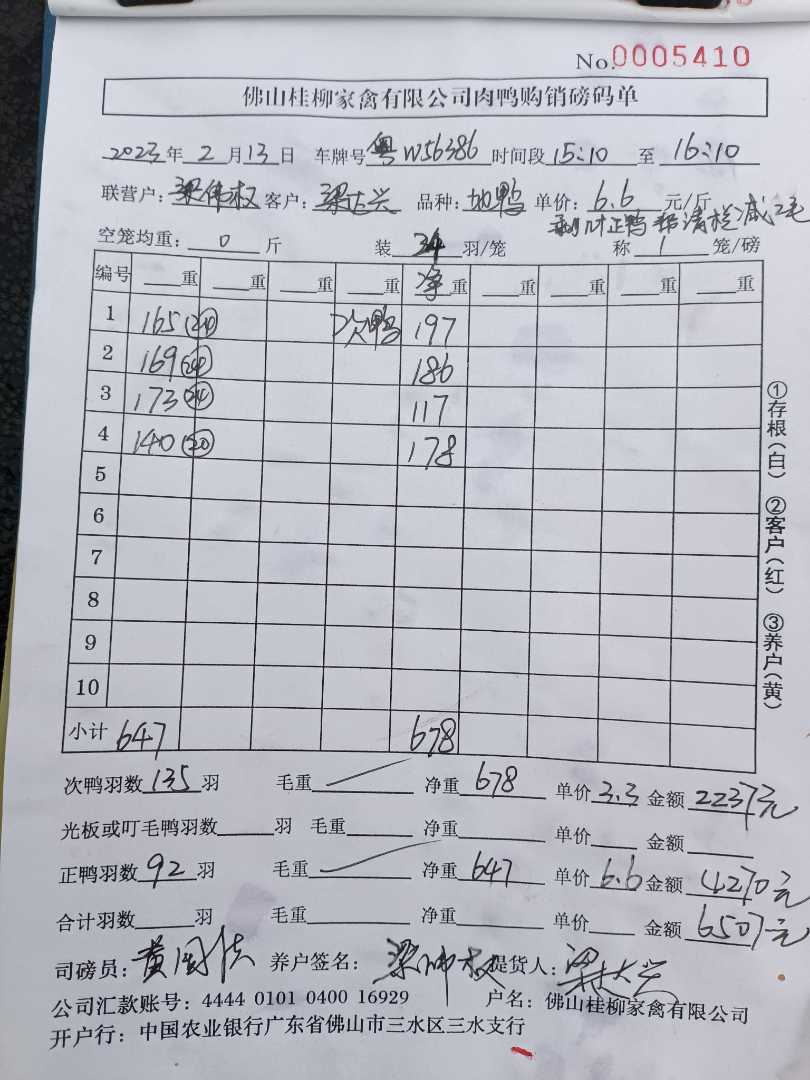 No.0005410
佛山桂柳家禽有限公司肉鸭购销磅码单
2023年 2 月 13 日 车牌号 粤W56386 时间段 15:10 至 16:10
联营户: 梁伟权 客户: 梁达兴 品种: 地鸭 单价: 6.6 元/斤
正鸭帮清栏减2毛
空笼均重: 0 斤 装 羽/笼 称 1 笼/磅
编号 重 重 重 重 净重 重 重 重 重
1 165(24) 次鸭 197
2 169(24) 186
3 173(24) 117
4 140(20) 178
5
6
7
8
9
10
小计 647 678
次鸭羽数 135 羽 毛重 净重 678 单价 3.3 金额 2237元
光板或叮毛鸭羽数 羽 毛重 净重 单价 金额
正鸭羽数 92 羽 毛重 净重 647 单价 6.6 金额 4270元
合计羽数 羽 毛重 净重 单价 金额 6507元
司磅员: 黄国 养户签名: 梁伟权 提货人: 梁达兴
公司汇款账号: 4444 0101 0400 16929 户名: 佛山桂柳家禽有限公司
开户行: 中国农业银行广东省佛山市三水区三水支行
①存根(白) ②客户(红) ③养户(黄)